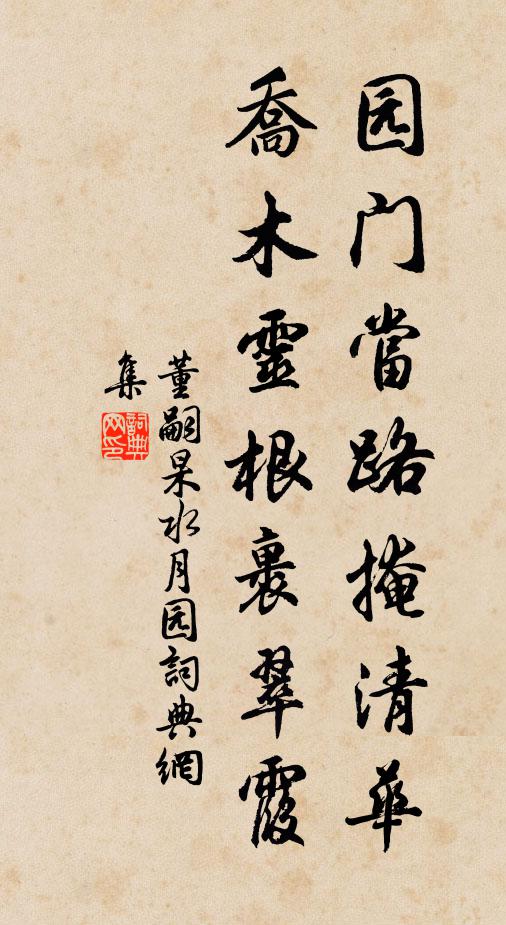 园门當路掩清華
喬木靈根裹翠霞
董嗣杲水月园詞典網
集
詞典
网印